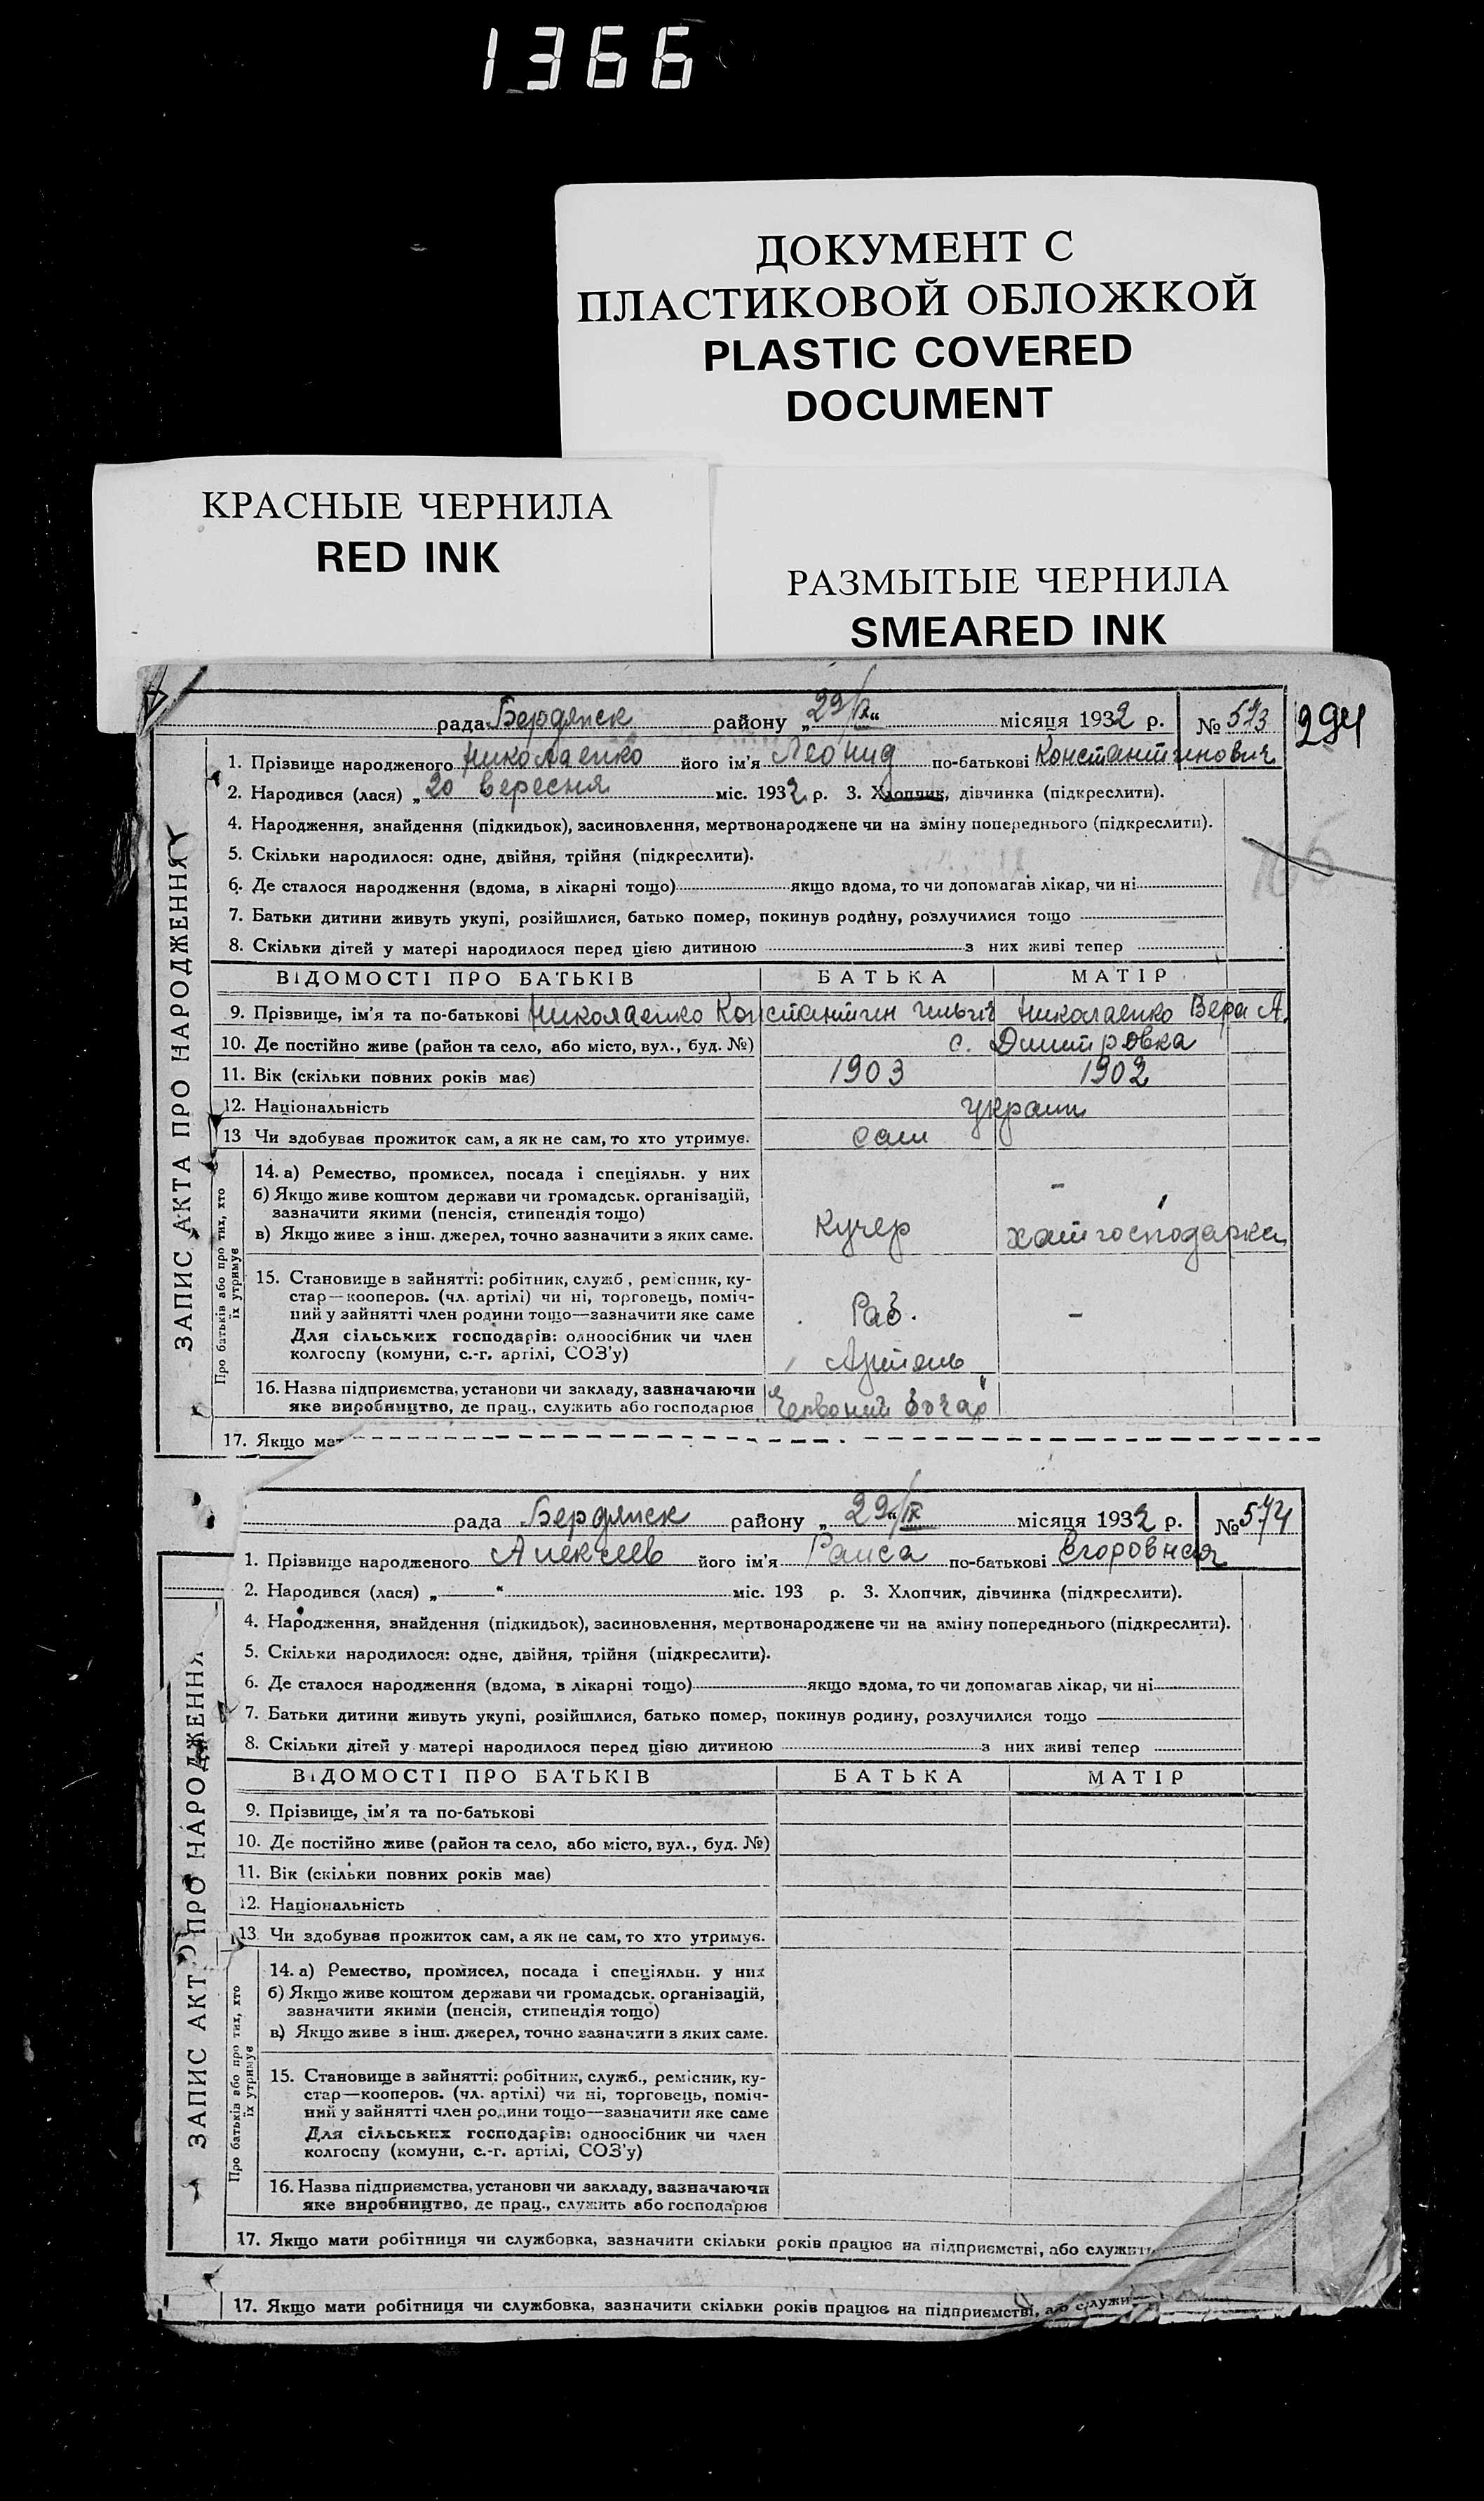 1366
ДОКУМЕНТ С
ПЛАСТИКОВОЙ ОБЛОЖКОЙ
PLASTIC COVERED
DOCUMENT
КРАСНЫЕ ЧЕРНИЛА
RED INK
РАЗМЫТЫЕ ЧЕРНИЛА
SMEARED INK
рада Бердянск району „29/IX“ місяця 1932 р. № 573
294
1. Прізвище народженого Николаенко його ім'я Леонид по-батькові Константинович
2. Народився (лася) „20 вересня міс. 1932 р. 3. Хлопчик, дівчинка (підкреслити).
4. Народження, знайдення (підкидьок), засиновлення, мертвонароджене чи на зміну попереднього (підкреслити).
5. Скільки народилося: одне, двійня, трійня (підкреслити).
6. Де сталося народження (вдома, в лікарні тощо) якщо вдома, то чи допомагав лікар, чи ні
7. Батьки дитини живуть укупі, розійшлися, батько помер, покинув родину, розлучилися тощо
8. Скільки дітей у матері народилося перед цією дитиною з них живі тепер
ВІДОМОСТІ ПРО БАТЬКІВ БАТЬКА МАТІР
9. Прізвище, ім'я та по-батькові Николаенко Константин Ильич Николаенко Вера А.
10. Де постійно живе (район та село, або місто, вул., буд. №) с. Дмитровка
11. Вік (скільки повних років має) 1903 1902
12. Національність украин
13 Чи здобуває прожиток сам, а як не сам, то хто утримує. сам
14. а) Ремество, промисел, посада і спеціяльн. у них -
б) Якщо живе коштом держави чи громадськ. організацій,
зазначити якими (пенсія, стипендія тощо)
в) Якщо живе з інш. джерел, точно зазначити з яких саме. Кучер хатгосподарка
15. Становище в зайнятті: робітник, служб, ремісник, ку-
стар—кооперов. (чл. артілі) чи ні, торговець, поміч-
ний у зайнятті член родини тощо—зазначити яке саме Раб. -
Для сільських господарів: одноосібник чи член
колгоспу (комуни, с.-г. артілі, СОЗ'у) Артель
16. Назва підприємства, установи чи закладу, зазначаючи
яке виробництво, де прац., служить або господарює Червоний
17. Якщо мат
ЗАПИС АКТА ПРО НАРОДЖЕННЯ
Про батьків або про тих, хто
їх утримує
рада Бердянск району „29“/IX місяця 1932 р. № 574
1. Прізвище народженого Алексеев його ім'я Раиса по-батькові Егоровная
2. Народився (лася) „ “ міс. 193 р. 3. Хлопчик, дівчинка (підкреслити).
4. Народження, знайдення (підкидьок), засиновлення, мертвонароджене чи на зміну попереднього (підкреслити).
5. Скільки народилося: одне, двійня, трійня (підкреслити).
6. Де сталося народження (вдома, в лікарні тощо) якщо вдома, то чи допомагав лікар, чи ні
7. Батьки дитини живуть укупі, розійшлися, батько помер, покинув родину, розлучилися тощо
8. Скільки дітей у матері народилося перед цією дитиною з них живі тепер
ВІДОМОСТІ ПРО БАТЬКІВ БАТЬКА МАТІР
9. Прізвище, ім'я та по-батькові
10. Де постійно живе (район та село, або місто, вул., буд. №)
11. Вік (скільки повних років має)
12. Національність
13 Чи здобуває прожиток сам, а як не сам, то хто утримує.
14. а) Ремество, промисел, посада і спеціяльн. у них
б) Якщо живе коштом держави чи громадськ. організацій,
зазначити якими (пенсія, стипендія тощо)
в) Якщо живе з інш. джерел, точно зазначити з яких саме.
15. Становище в зайнятті: робітник, служб., ремісник, ку-
стар—кооперов. (чл. артілі) чи ні, торговець, поміч-
ний у зайнятті член родини тощо—зазначити яке саме
Для сільських господарів: одноосібник чи член
колгоспу (комуни, с.-г. артілі, СОЗ'у)
16. Назва підприємства, установи чи закладу, зазначаючи
яке виробництво, де прац., служить або господарює
17. Якщо мати робітниця чи службовка, зазначити скільки років працює на підприємстві, або служить
ЗАПИС АКТ ПРО НАРОДЖЕННЯ
Про батьків або про тих, хто
їх утримує
17. Якщо мати робітниця чи службовка, зазначити скільки років працює на підприємстві, або служи